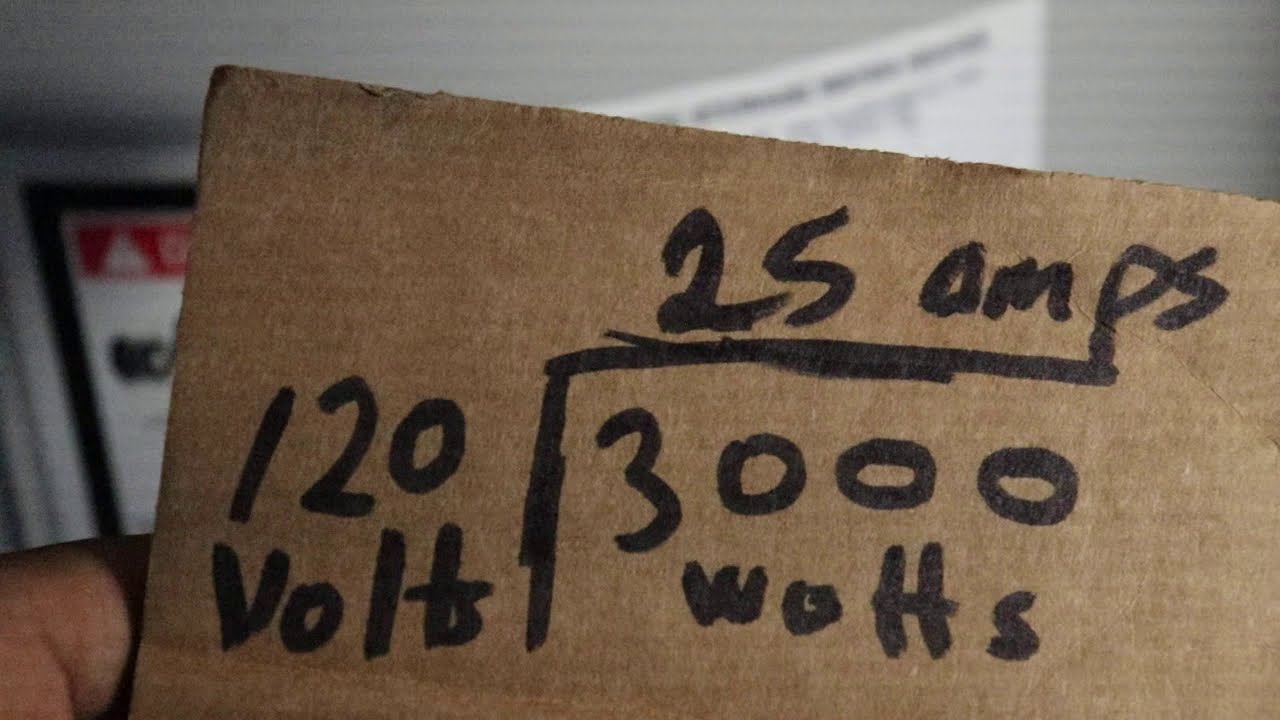 25 amps
120 3000
Volts watts